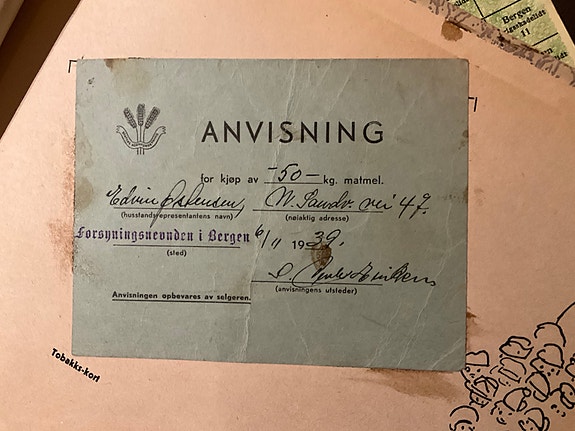 Bergen
11
ANVISNING
for kjøp av -50- kg. matmel.
Edvin Østensen, N. Sandv. vei 49.
(husstandsrepresentantens navn) (nøiaktig adresse)
Forsyningsnevnden i Bergen 6/11 1939.
(sted)
(anvisningens utsteder)
Anvisningen opbevares av selgeren.
Tobakks-kort